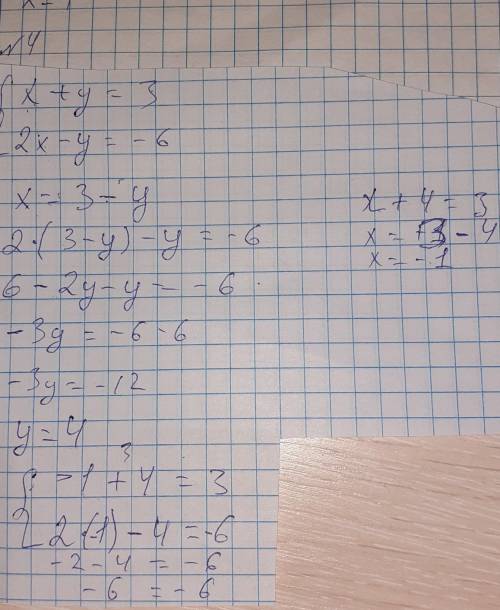 N4
x + y = 3
2x - y = -6
x = 3 - y
2·(3-y) - y = -6
6 - 2y - y = -6
-3y = -6-6
-3y = -12
y = 4
x + 4 = 3
x = 3 - 4
x = -1
-1 + 4 = 3
2·(-1) - 4 = -6
-2 - 4 = -6
-6 = -6